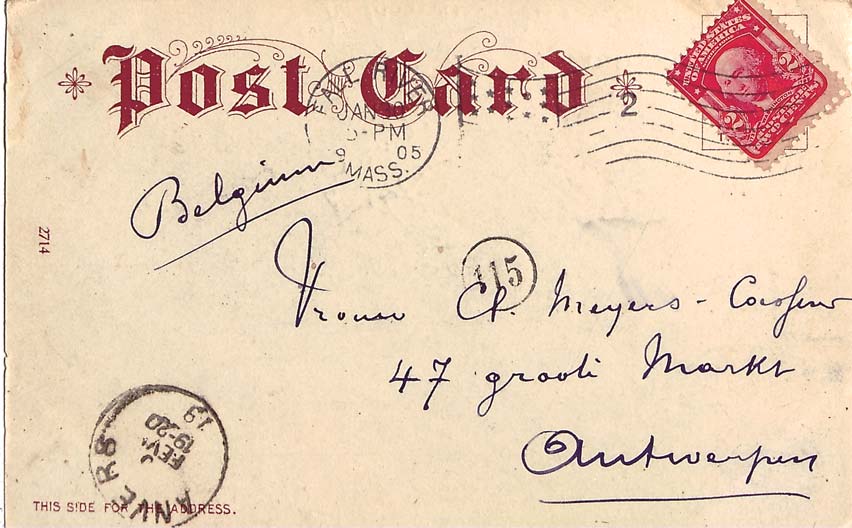 Post Card
FALL RIVER
JAN
PM
9 05
MASS.
2
UNITED STATES
OF AMERICA
2 2
TWO CENTS
Belgium
2714
115
Ch. Meyers-
47 groote Markt
Antwerpen
ANVERS
FEV
19-20
19
THIS SIDE FOR THE ADDRESS.